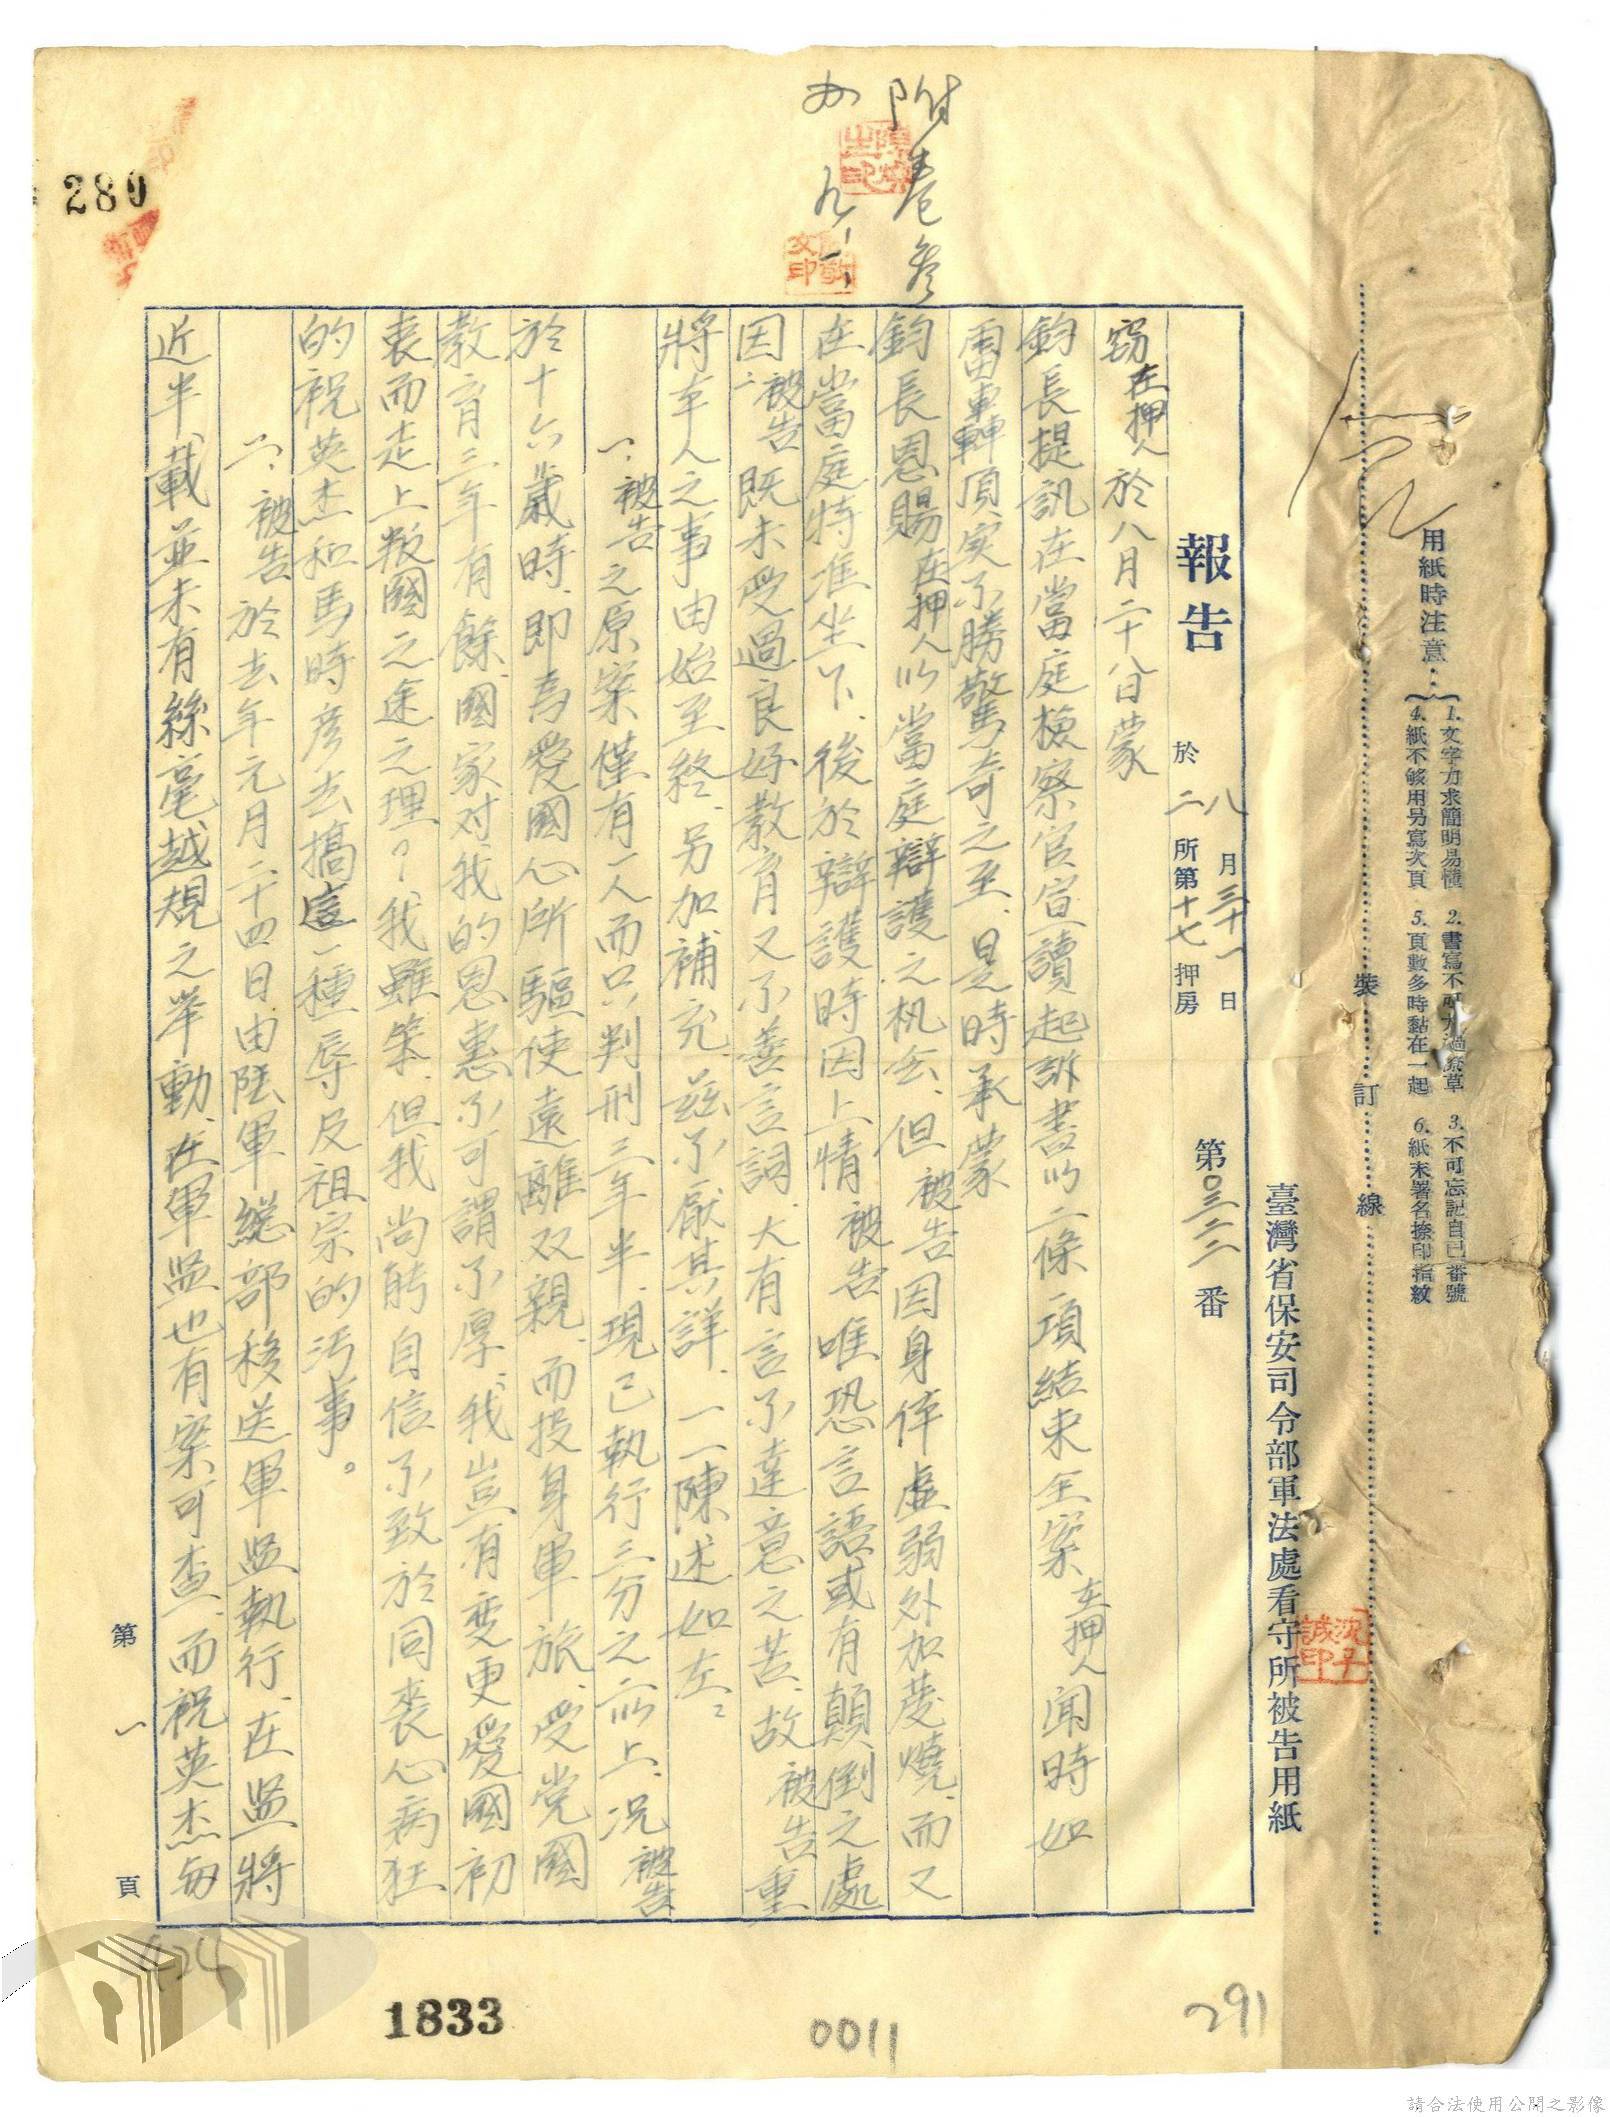 用紙時注意：
1. 文字力求簡明易懂 2. 書寫不可太過潦草 3. 不可忘記自己番號
4. 紙不够用另寫次頁 5. 頁數多時黏在一起 6. 紙末署名捺印指紋
裝 訂 線
臺灣省保安司令部軍法處看守所被告用紙
沈子誠印
附卷參
九、一、
280
報告 於 八月三十一日 二所第十七押房 第〇三二二番
竊在押人於八月二十八日蒙
鈞長提訊在當庭檢察官宣讀起訴書以二條一項結束全案在押人聞時如
雷轟頂实不勝驚奇之至、是時承蒙
鈞長恩賜在押人以當庭辯護之机会、但被告因身体虛弱外加發燒、而又
在當庭特准坐下、後於辯護時因上情被告唯恐言語或有顛倒之處
因、被告既未受過良好教育又不善言詞、大有言不達意之苦、故被告重
將本人之事由始至終、另加補充、茲不厭其詳、一一陳述如左、
一、被告之原案僅有一人而只判刑三年半、現已執行三分之一以上、况被告
於十六歲時、即為愛國心所驅使遠離双親、而投身軍旅、受党國
教育三年有餘、國家对我的恩惠不可謂不厚、我豈有变更愛國初
衷而走上叛國之途之理？我雖笨、但我尚能自信不致於同喪心病狂
的祝英杰和馬時彥去搞這一種辱反祖宗的污事。
二、被告於去年元月二十四日、由陸軍總部移送軍监執行、在监將
近半載並未有絲毫越規之举動、在軍监也有案可查、而祝英杰每
第一頁
424
1833
0011
291
請合法使用公開之影像